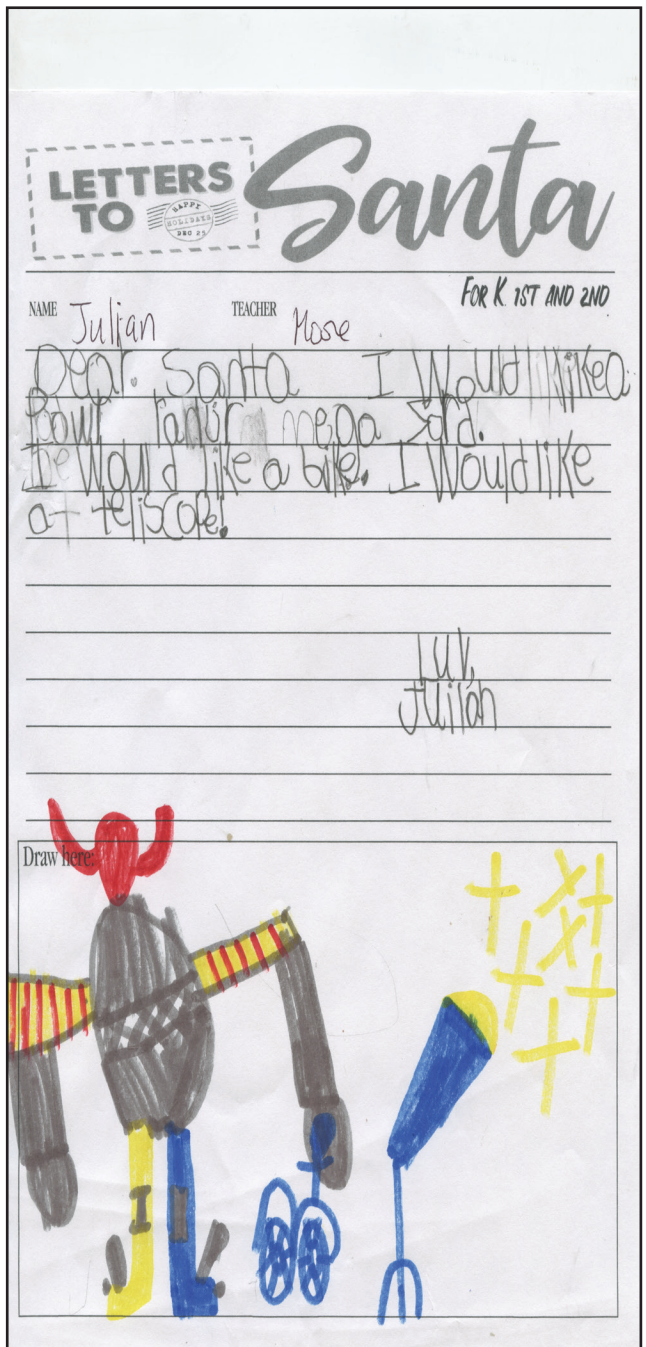 LETTERS
TO
HAPPY
HOLIDAYS
DEC 25
Santa
FOR K, 1ST AND 2ND
NAME Julian TEACHER Mose
Dear. Santa I Would likea
Pawr ranür mega
I Would like a bike. I Would like
a teliscope!
Luv,
Juilan
Draw here: